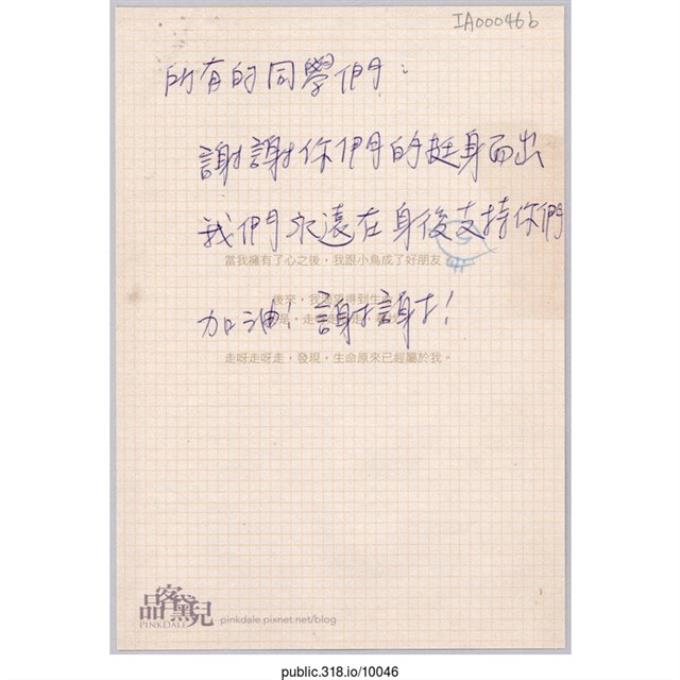 IA00046b
所有的同學們：
謝謝你們的挺身而出
我們永遠在身後支持你們
當我擁有了心之後，我跟小鳥成了好朋友
後來，我 得到生
加油！謝謝！
是，走
走呀走呀走，發現，生命原來已經屬於我。
品客黛兒
PINKDALE
pinkdale.pixnet.net/blog
public.318.io/10046